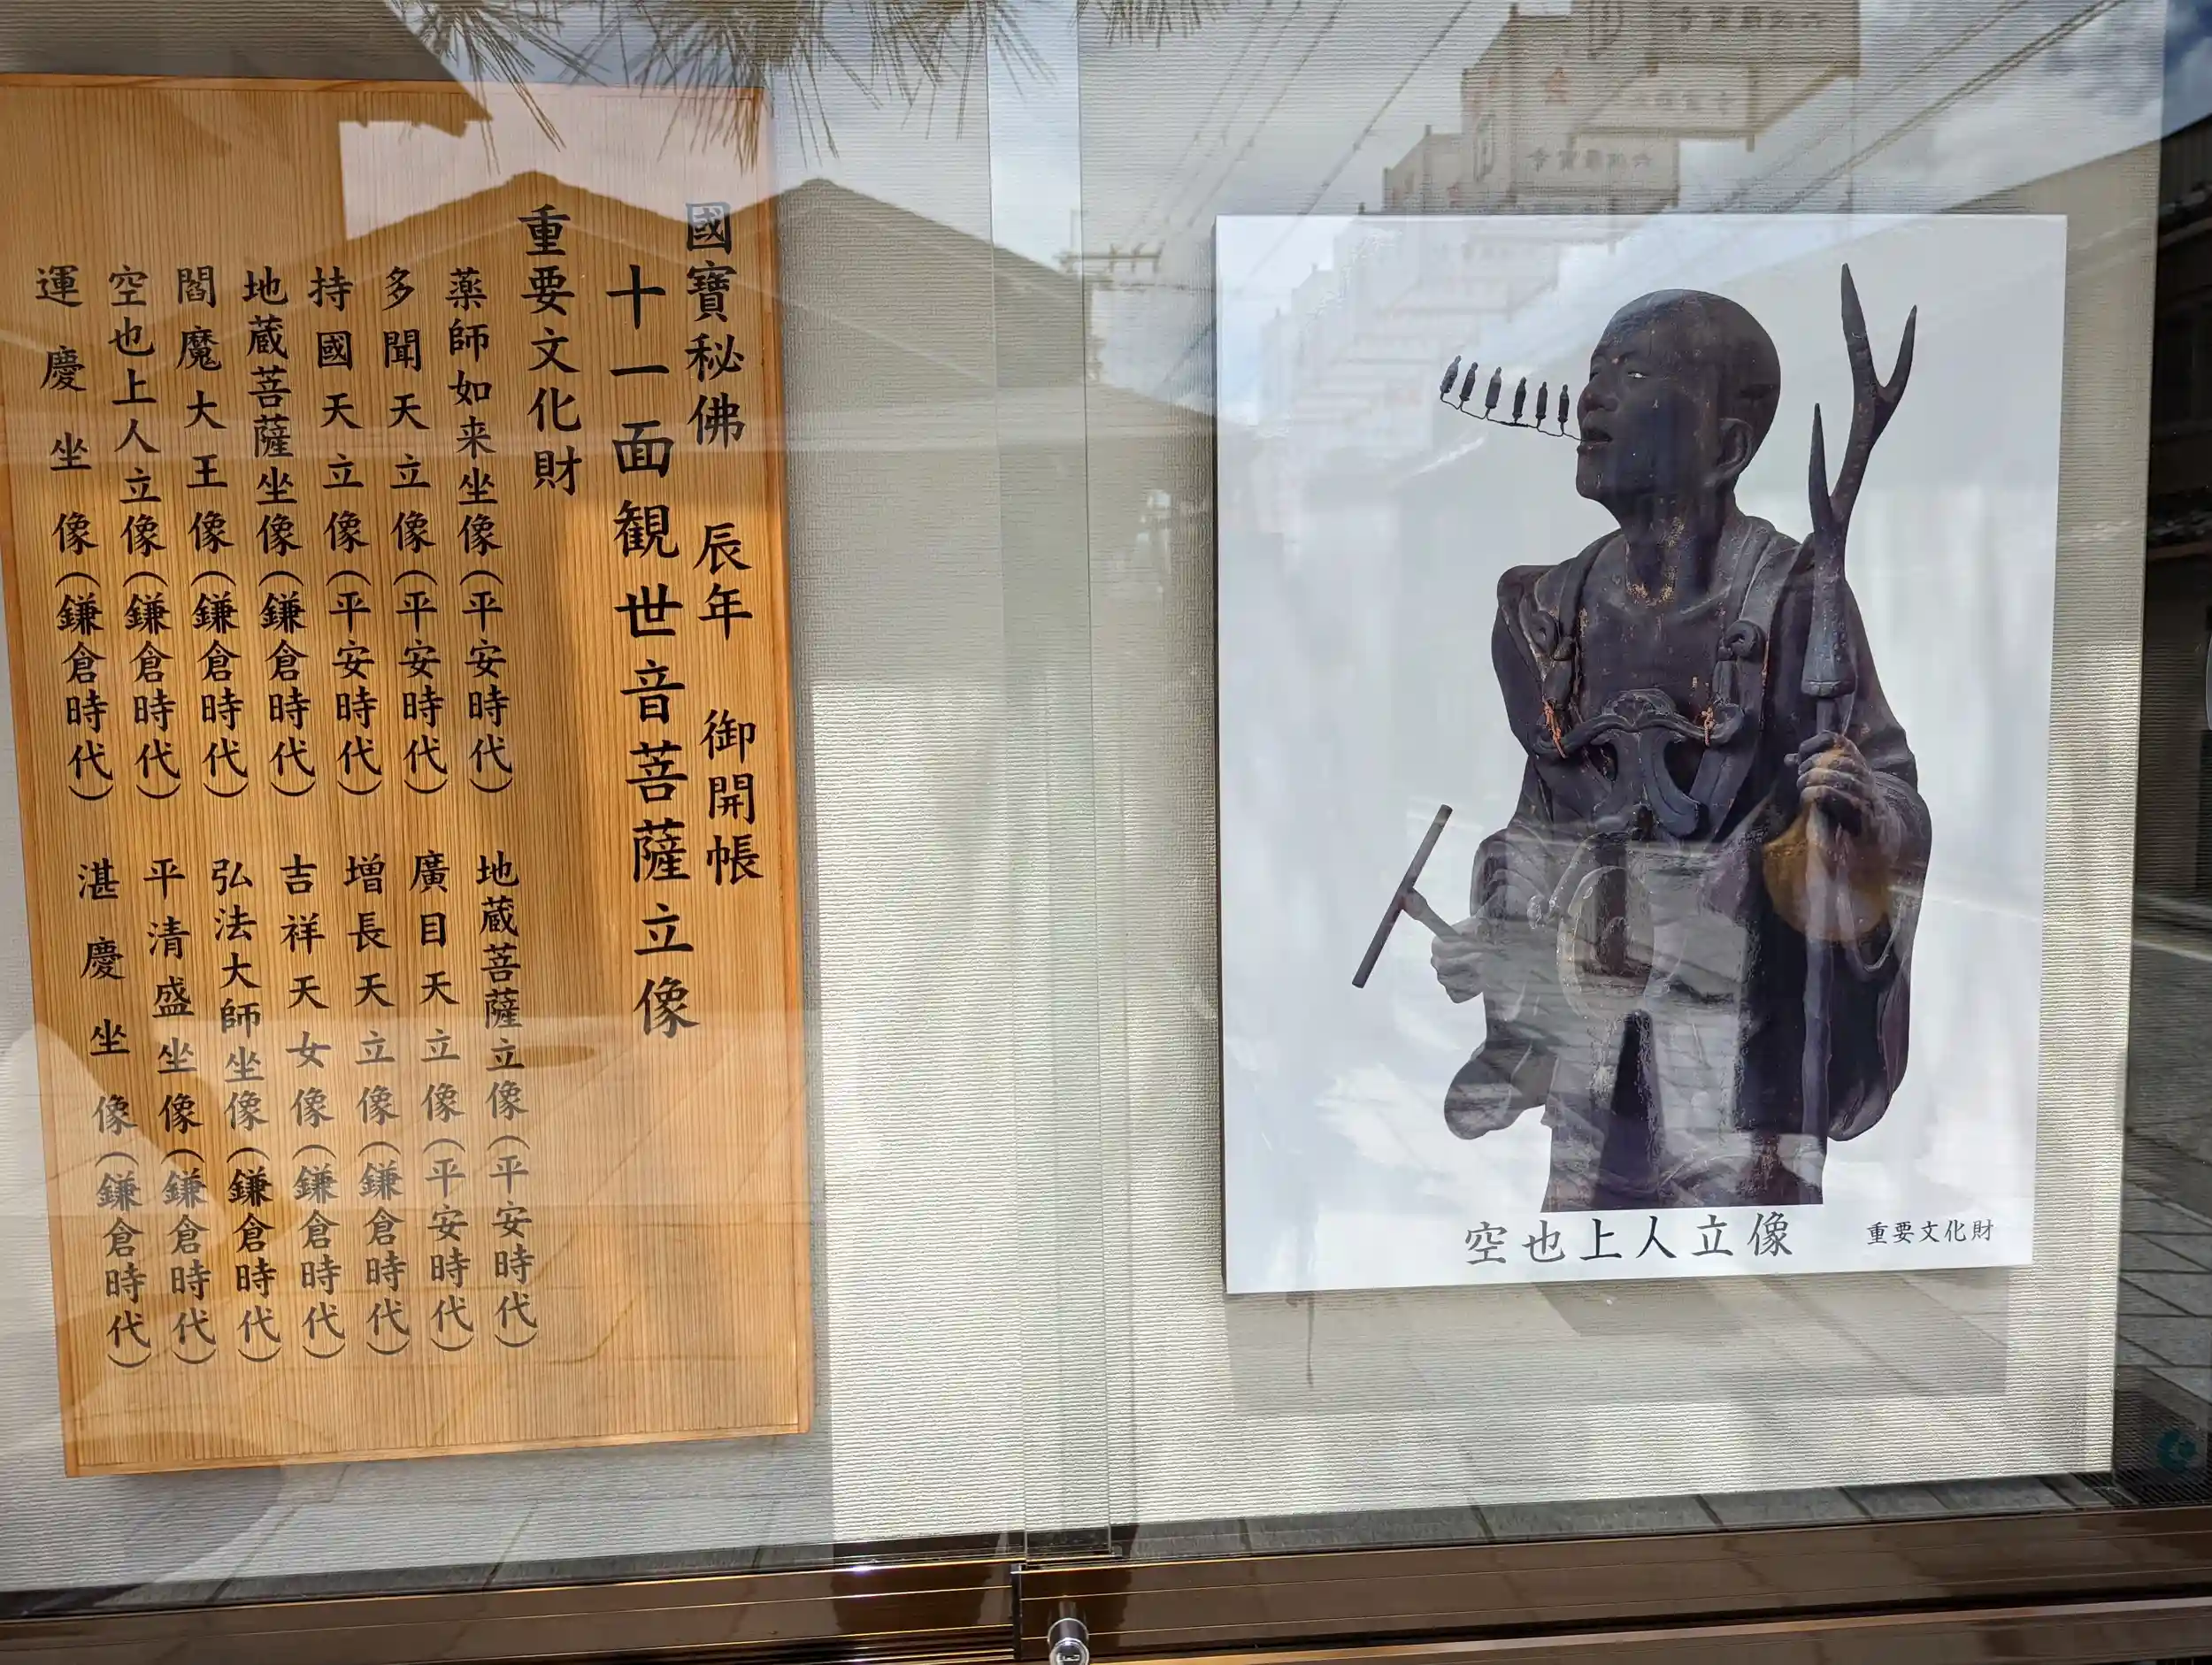 國寶秘佛 辰年 御開帳
十一面観世音菩薩立像
重要文化財
薬師如来坐像(平安時代)
地蔵菩薩立像(平安時代)
多聞天立像(平安時代)
廣目天立像(平安時代)
持國天立像(平安時代)
増長天立像(鎌倉時代)
地蔵菩薩坐像(鎌倉時代)
吉祥天女像(鎌倉時代)
閻魔大王像(鎌倉時代)
弘法大師坐像(鎌倉時代)
空也上人立像(鎌倉時代)
平清盛坐像(鎌倉時代)
運慶坐像(鎌倉時代)
湛慶坐像(鎌倉時代)
空也上人立像
重要文化財